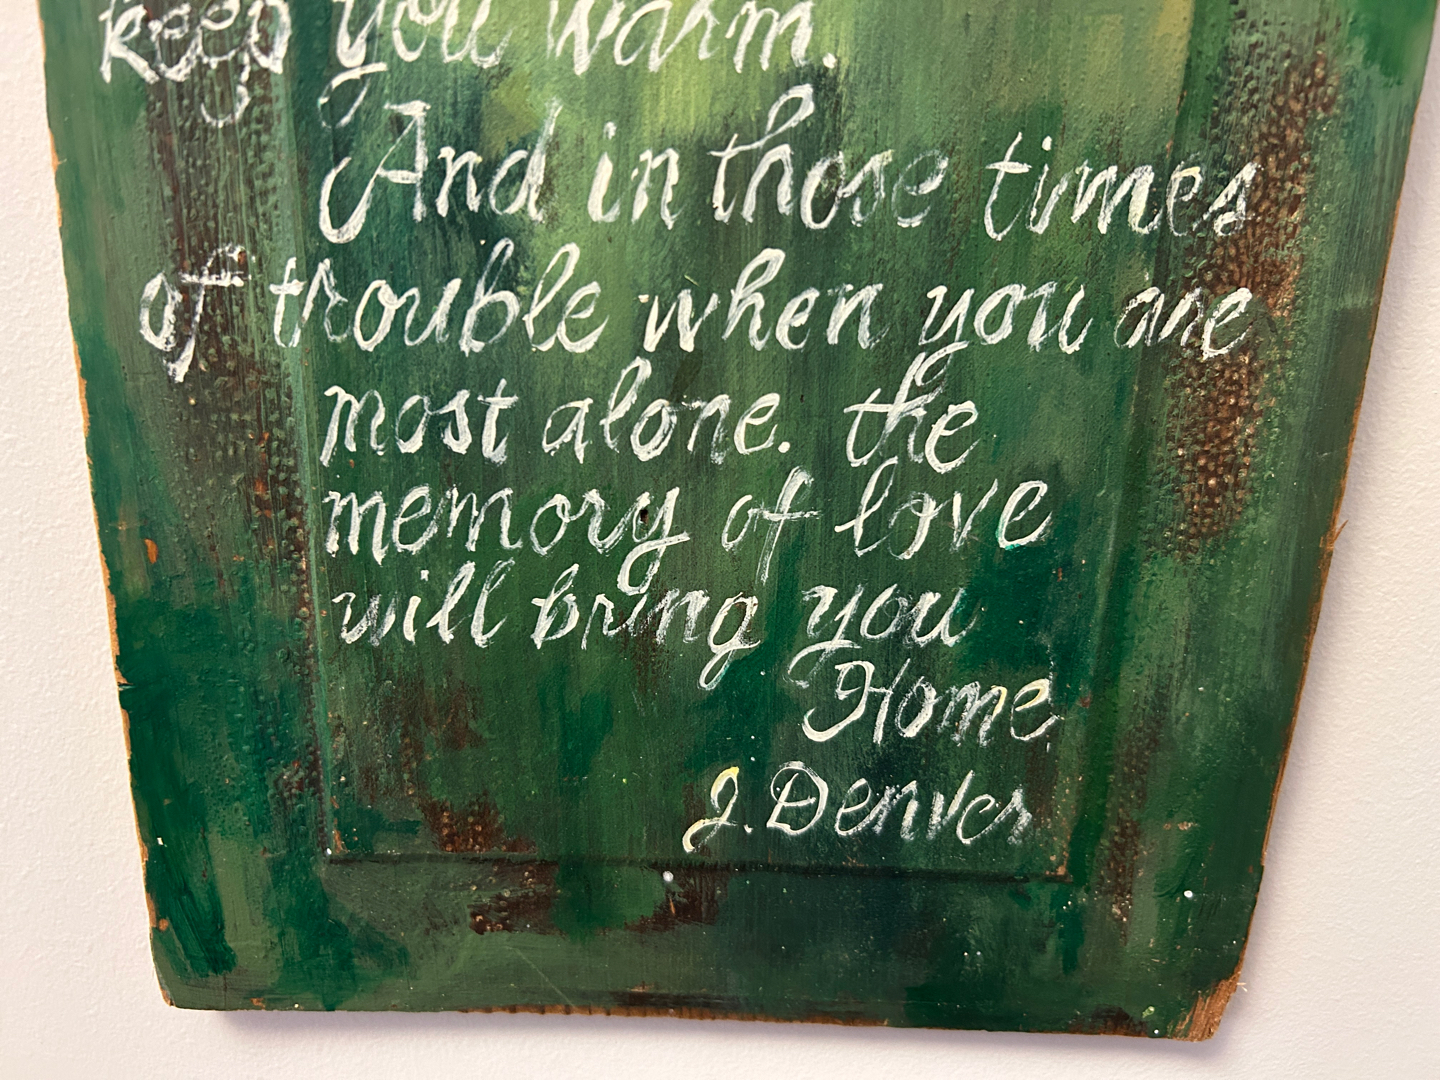 keep you warm.
And in those times
of trouble when you are
most alone. the
memory of love
will bring you
Home.
J. Denver